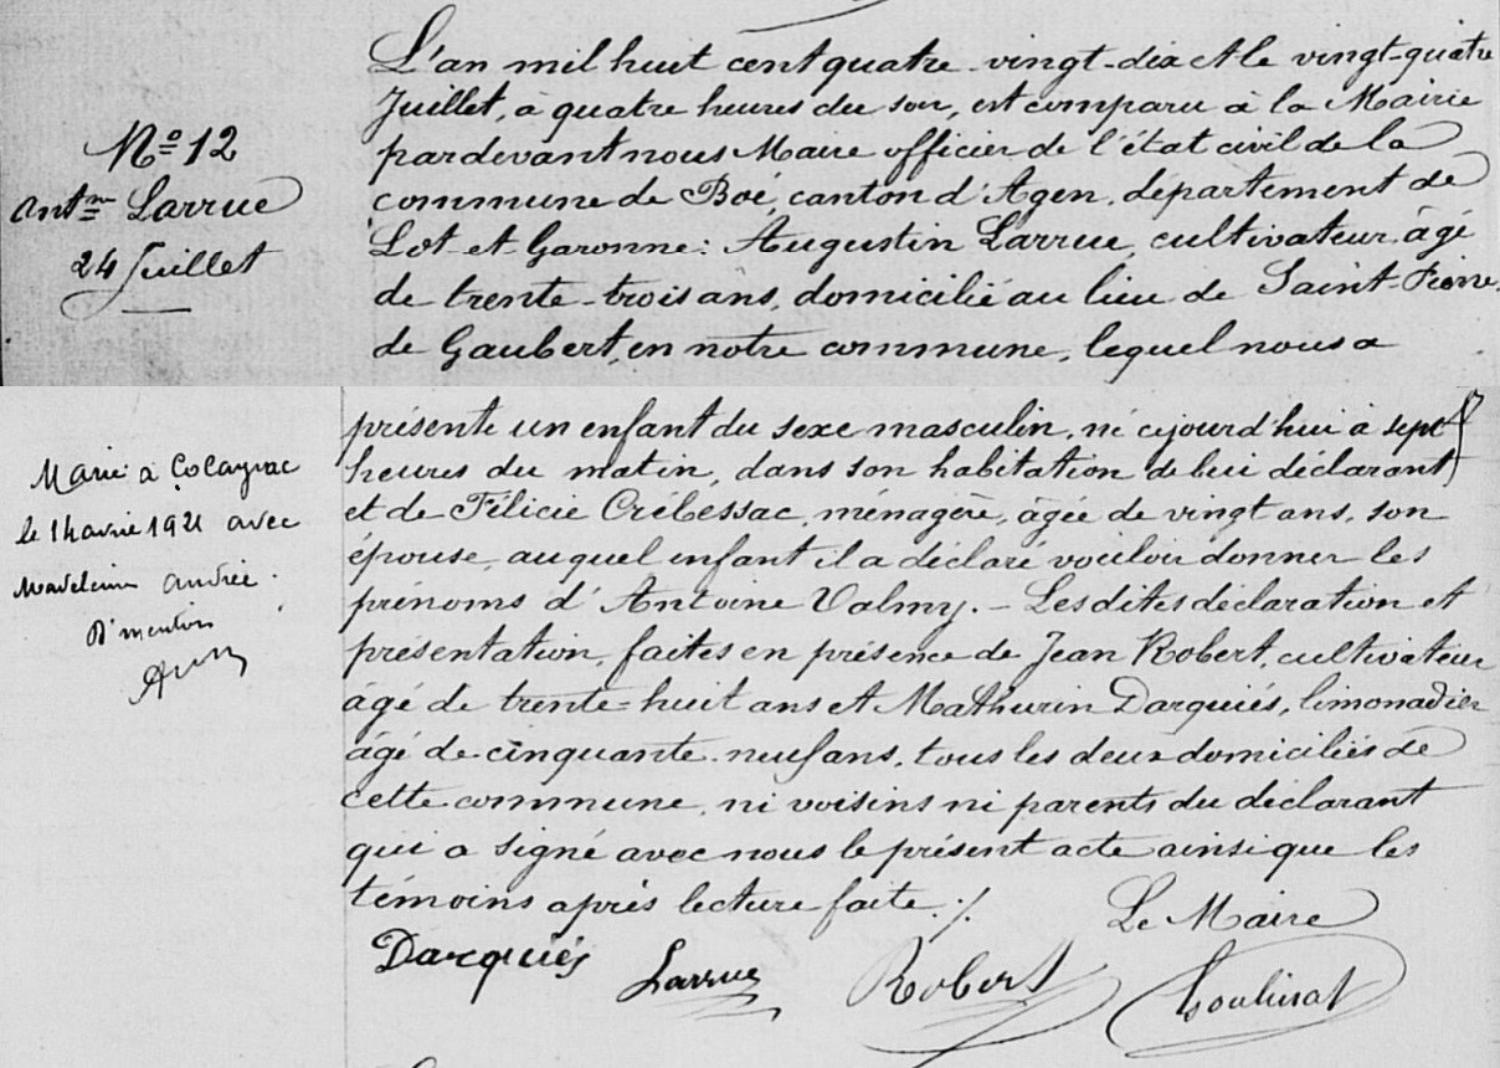 L'an mil huit cent quatre-vingt-dix et le vingt-quatre
Juillet, à quatre heures du soir, est comparu à la Mairie
N° 12
par devant nous Maire officier de l'état civil de la
Ant.ne Larrue
commune de Boé, canton d'Agen, département de
24 Juillet
Lot-et-Garonne: Augustin Larrue, cultivateur, âgé
de trente-trois ans, domicilié au lieu de Saint-Pierre
de Gaubert, en notre commune, lequel nous a
présenté un enfant du sexe masculin, né cejourd'hui à sept
Marié à Colayrac
heures du matin, dans son habitation de lui déclarant
le avril 1921 avec
et de Félicie Crébessac, ménagère, âgée de vingt ans, son
Madeleine Andrée
épouse, auquel enfant il a déclaré vouloir donner les
Dt mention
prénoms d'Antoine Valmy. - Lesdites déclaration et
présentation, faites en présence de Jean Robert, cultivateur
âgé de trente-huit ans et Mathurin Darquiés, limonadier
âgé de cinquante-neuf ans, tous les deux domiciliés de
cette commune, ni voisins ni parents du déclarant
qui a signé avec nous le présent acte ainsi que les
témoins après lecture faite ./.
Le Maire
Darquiés Larrue Robert